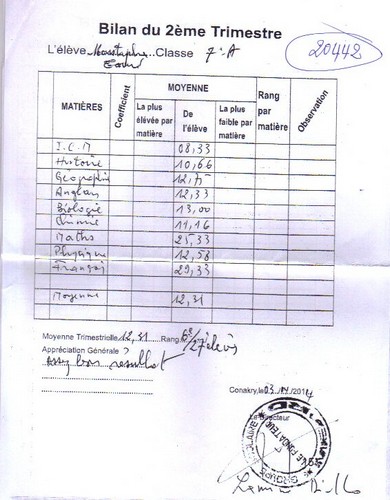 Bilan du 2ème Trimestre
L'élève Moustapha Classe 7e A
20442
MATIÈRES Coefficient MOYENNE Rang par matière Observation
La plus élevée par matière De l'élève La plus faible par matière
I.C.M 08,33
Histoire 10,66
Géographie 12,75
Anglais 12,33
Biologie 13,00
Chimie 11,16
Maths 25,33
Physique 12,58
Français 29,33
Moyenne 12,31
Moyenne Trimestrielle 12,31 Rang 6e/27 élèves
Appréciation Générale ?
Assez bon resultat
Conakry, le 03 /2014
Le Directeur